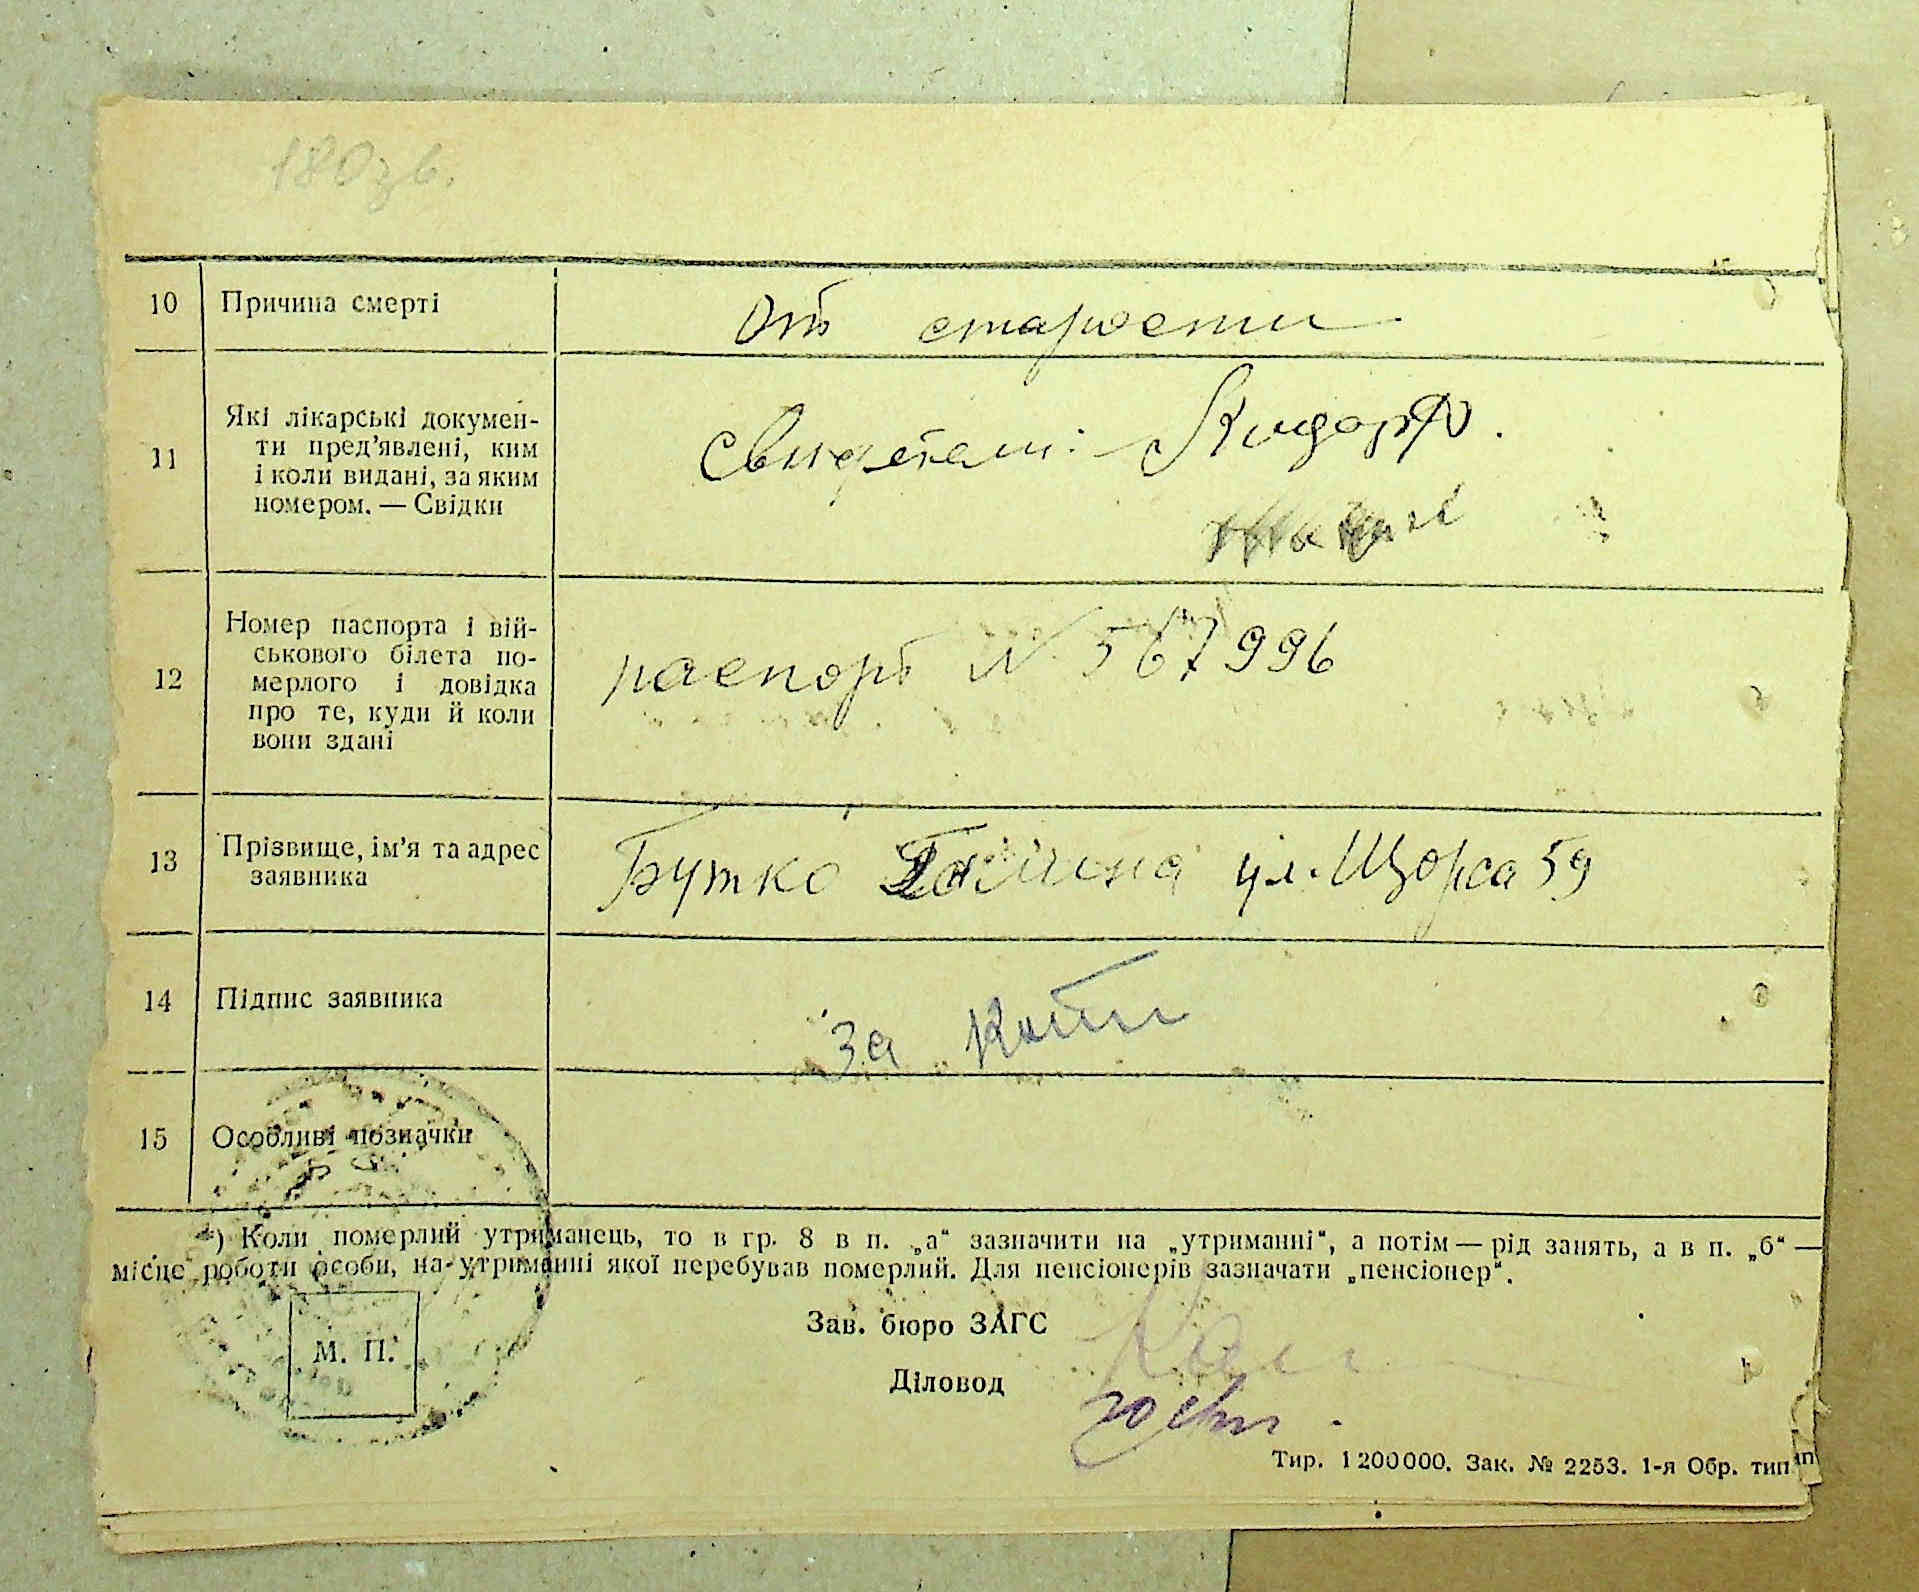 180зв.
10 Причина смерті От старости
11 Які лікарські докумен-
ти пред'явлені, ким
і коли видані, за яким
номером. — Свідки
свидетели:
12 Номер паспорта і вій-
ськового білета по-
мерлого і довідка
про те, куди й коли
вони здані
паспорт N 567996
13 Прізвище, ім'я та адрес
заявника
Бутко Галина ул. Щорса 59
14 Підпис заявника За
15 Особливі позначки
*) Коли померлий утриманець, то в гр. 8 в п. „а“ зазначити на „утриманні“, а потім — рід занять, а в п. „б“ —
місце роботи особи, на утриманні якої перебував померлий. Для пенсіонерів зазначати „пенсіонер“.
Зав. бюро ЗАГС
М. П.
Діловод
Тир. 1 200 000. Зак. № 2253. 1-я Обр. тип